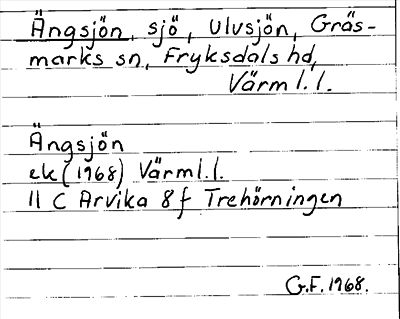 Ängsjön, sjö, Ulvsjön, Gräs-
marks sn, Fryksdals hd,
Värml.l.
Ängsjön
ek (1968) Värml.l.
11 C Arvika 8 f Trehörningen
G.F. 1968.